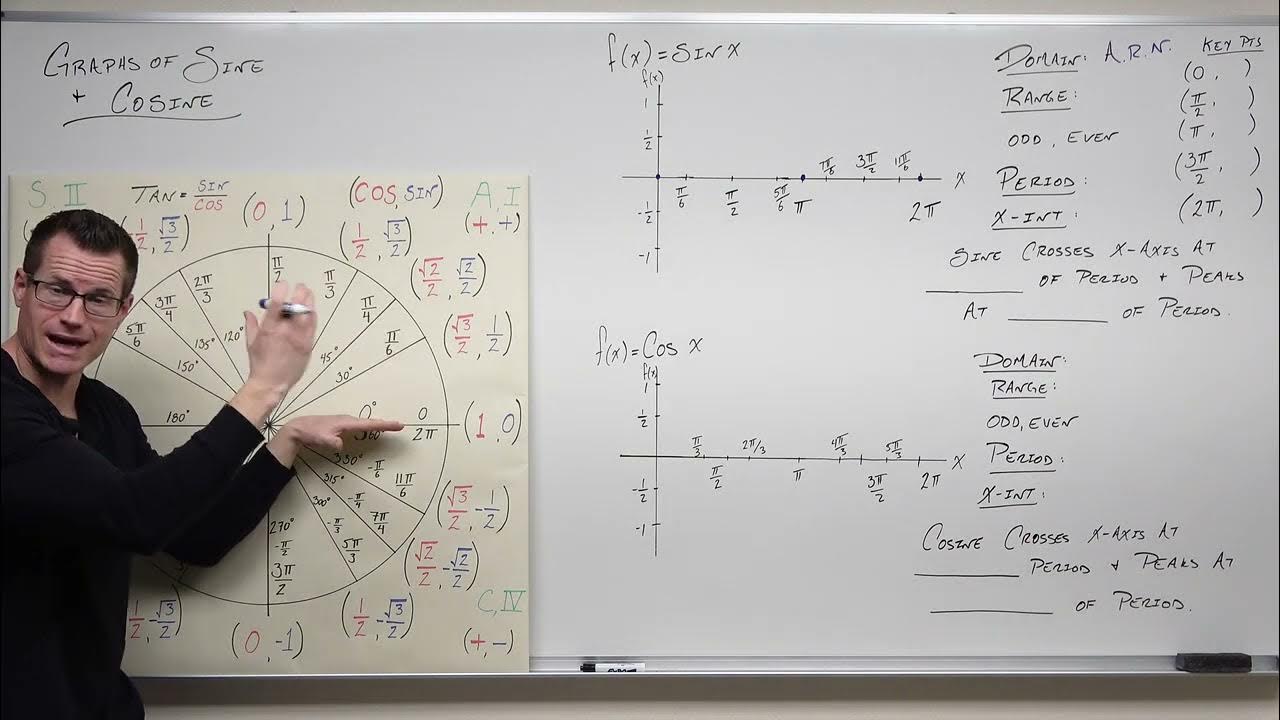 GRAPHS OF SINE
+ COSINE
S, II
TAN = SIN/COS
(0, 1)
(COS, SIN)
A, I
(+, +)
1/2, √3/2)
(1/2, √3/2)
(√2/2, √2/2)
(√3/2, 1/2)
2π/3
π/2
π/3
3π/4
π/4
5π/6
π/6
120°
135°
45°
150°
30°
180°
0°
0
360°
2π
(1, 0)
330°
-π/6
11π/6
315°
-π/4
7π/4
300°
-π/3
5π/3
270°
-π/2
3π/2
(√3/2, -1/2)
(√2/2, -√2/2)
1/2, -√3/2)
(0, -1)
(1/2, -√3/2)
C, IV
(+, -)
f(x) = SIN x
f(x)
1
1/2
-1/2
-1
π/6
π/2
5π/6
π
7π/6
3π/2
11π/6
2π
x
DOMAIN: A.R.N.
RANGE:
ODD, EVEN
PERIOD:
X-INT:
KEY PTS
(0, )
(π/2, )
(π, )
(3π/2, )
(2π, )
SINE CROSSES X-AXIS AT
________ OF PERIOD + PEAKS
AT ________ OF PERIOD.
f(x) = COS x
f(x)
1
1/2
-1/2
-1
π/3
π/2
2π/3
π
4π/3
3π/2
5π/3
2π
x
DOMAIN:
RANGE:
ODD, EVEN
PERIOD:
X-INT:
COSINE CROSSES X-AXIS AT
________ PERIOD + PEAKS AT
________ OF PERIOD.